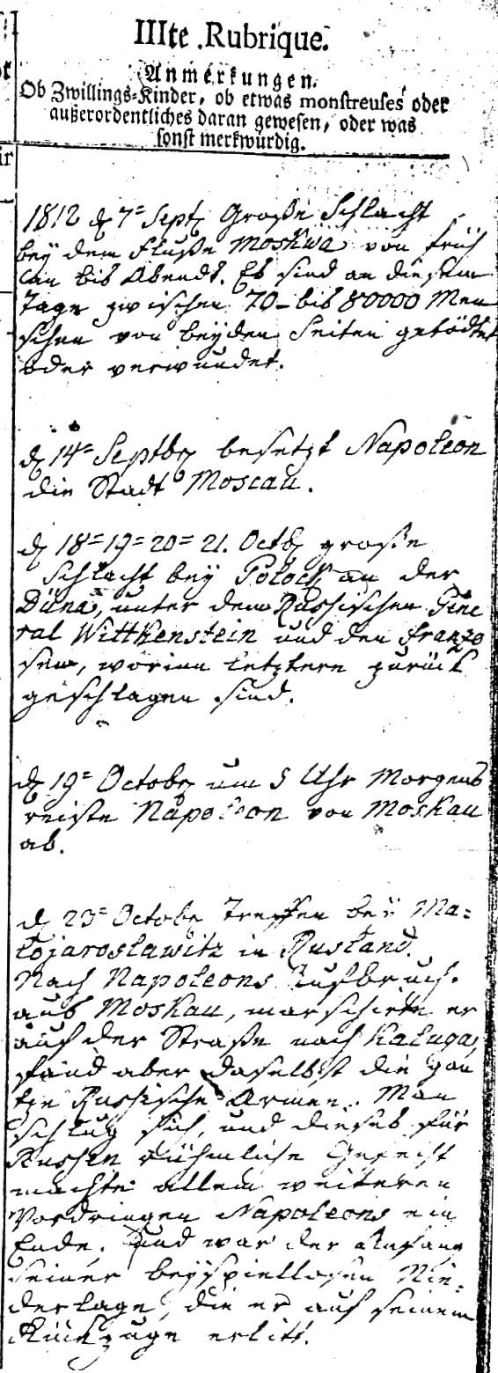 IIIte Rubrique.
Anmerkungen.
Ob Zwillings-Kinder, ob etwas monstreuses oder
außerordentliches daran gewesen, oder was
sonst merkwürdig.
1812 d 7= Sept. Große Schlacht
bey dem Fluße Moskwa von früh
an bis Abends. Es sind an diesem
Tage zwischen 70- bis 80000 Men
schen von beyden Seiten getödtet
oder verwundet.
d 14= Septbr besetzt Napoleon
die Stadt Moscau.
d 18=19=20=21. Octb große
Schlacht bey Polock an der
Düna, unter dem Russischen Gene
ral Wittkenstein und den Franzo
sen, worinn letztere zurück
geschlagen sind.
d 19= Octobr um 5 Uhr Morgens
reiste Napoleon von Moskau
ab.
d 23= Octobr Treffen bey Ma=
lojaroslawitz in Rusland.
Nach Napoleons Aufbruch
aus Moskau, marschirte er
auf der Straße nach Kaluga,
fand aber daselbst die gan
tze Russische Armee. Man
schlug sich, und dieses für
Russen rühmliche Gefecht
machte allem weiteren
Vordringen Napoleons ein
Ende. Und war der Anfang
seiner beyspiellosen Nie=
derlage, die er auf seinem
Rückzuge erlitt.